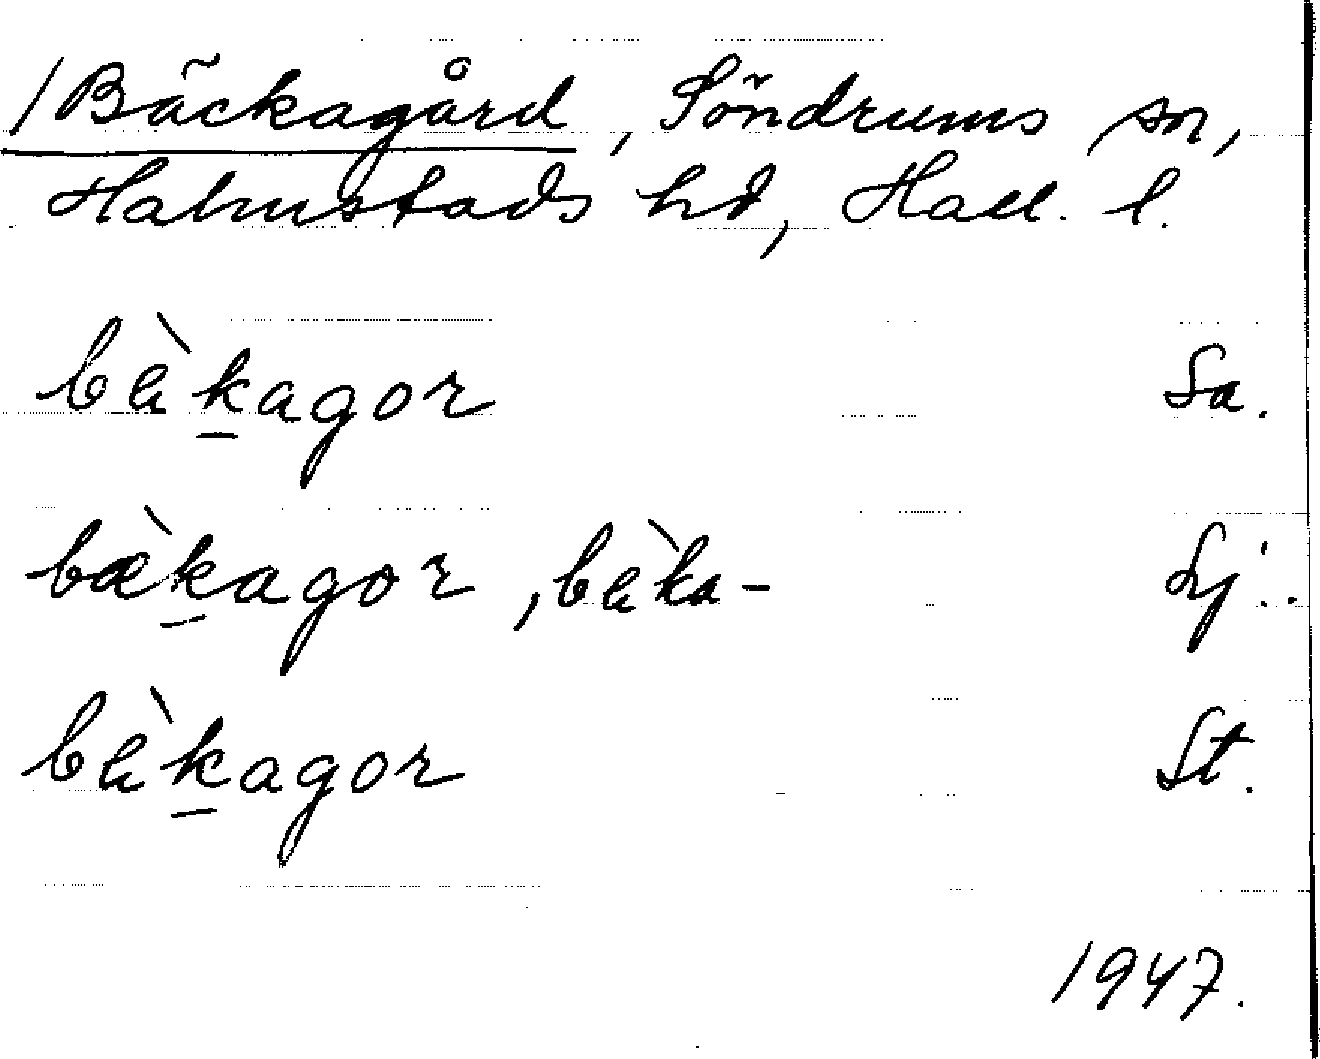 /Bäckagård, Söndrums sn,
Halmstads hd, Hall. l.
bèkagor Sa.
bæ̀kagor, bèka- Lj.
bèkagor St.
1947.